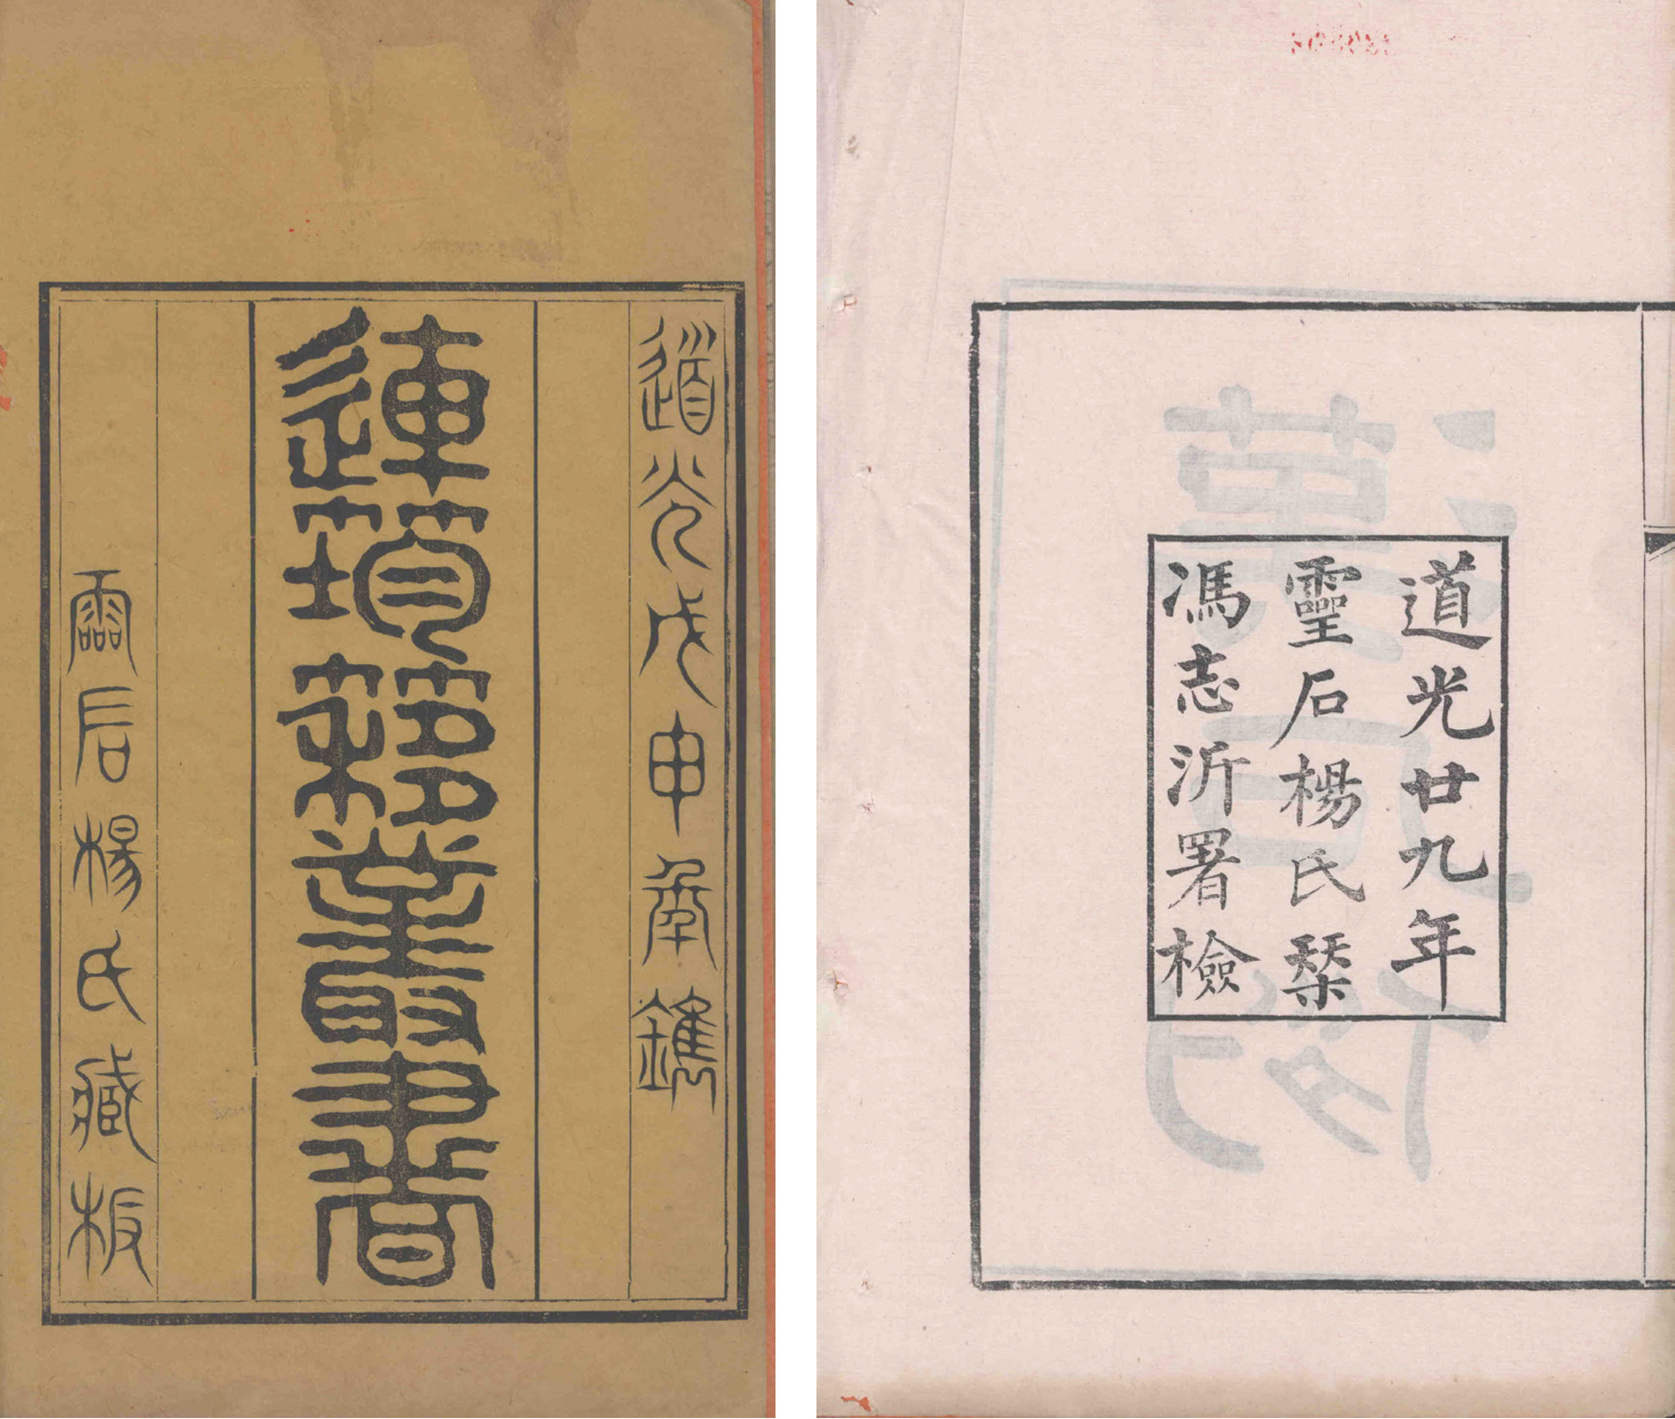 道光戊申秊鐫
連筠簃叢書
靈石楊氏臧板
道光廿九年
靈石楊氏栞
馮志沂署檢